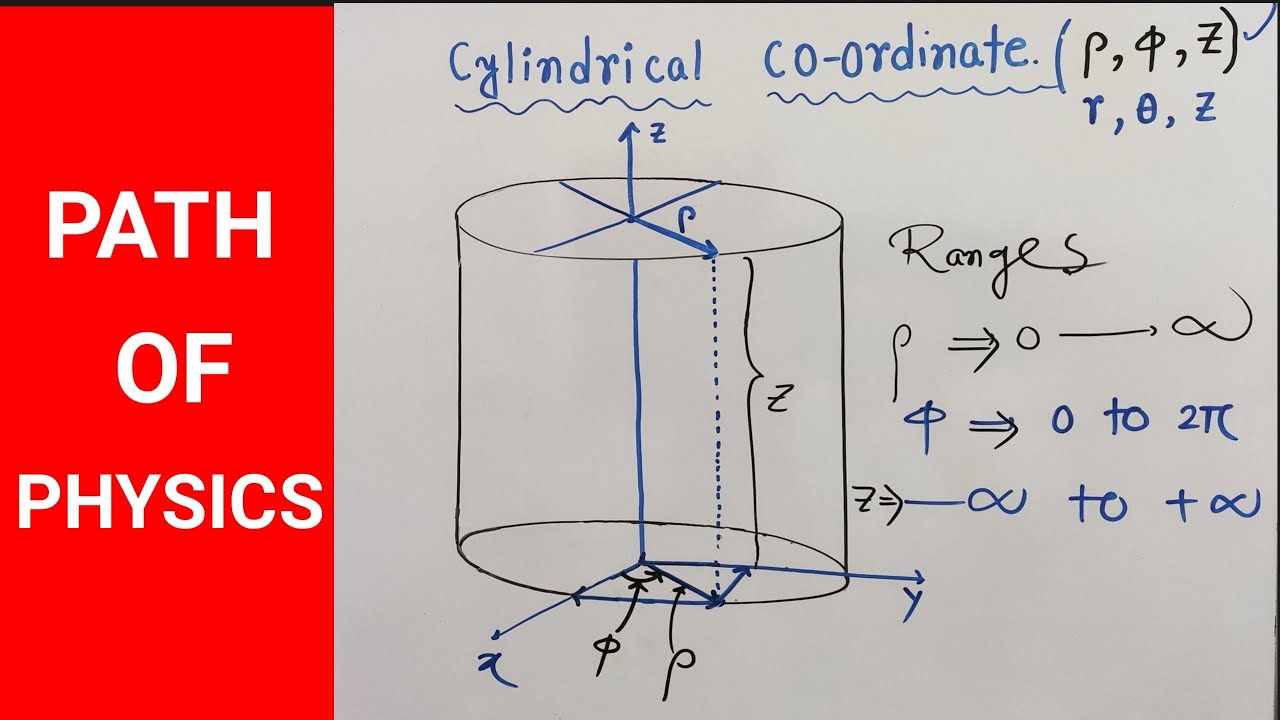 PATH
OF
PHYSICS
Cylindrical co-ordinate. (ρ, φ, z)
r, θ, z
z
ρ
z
y
x
φ
ρ
Ranges
ρ ⇒ 0 — ∞
φ ⇒ 0 to 2π
z ⇒ -∞ to +∞